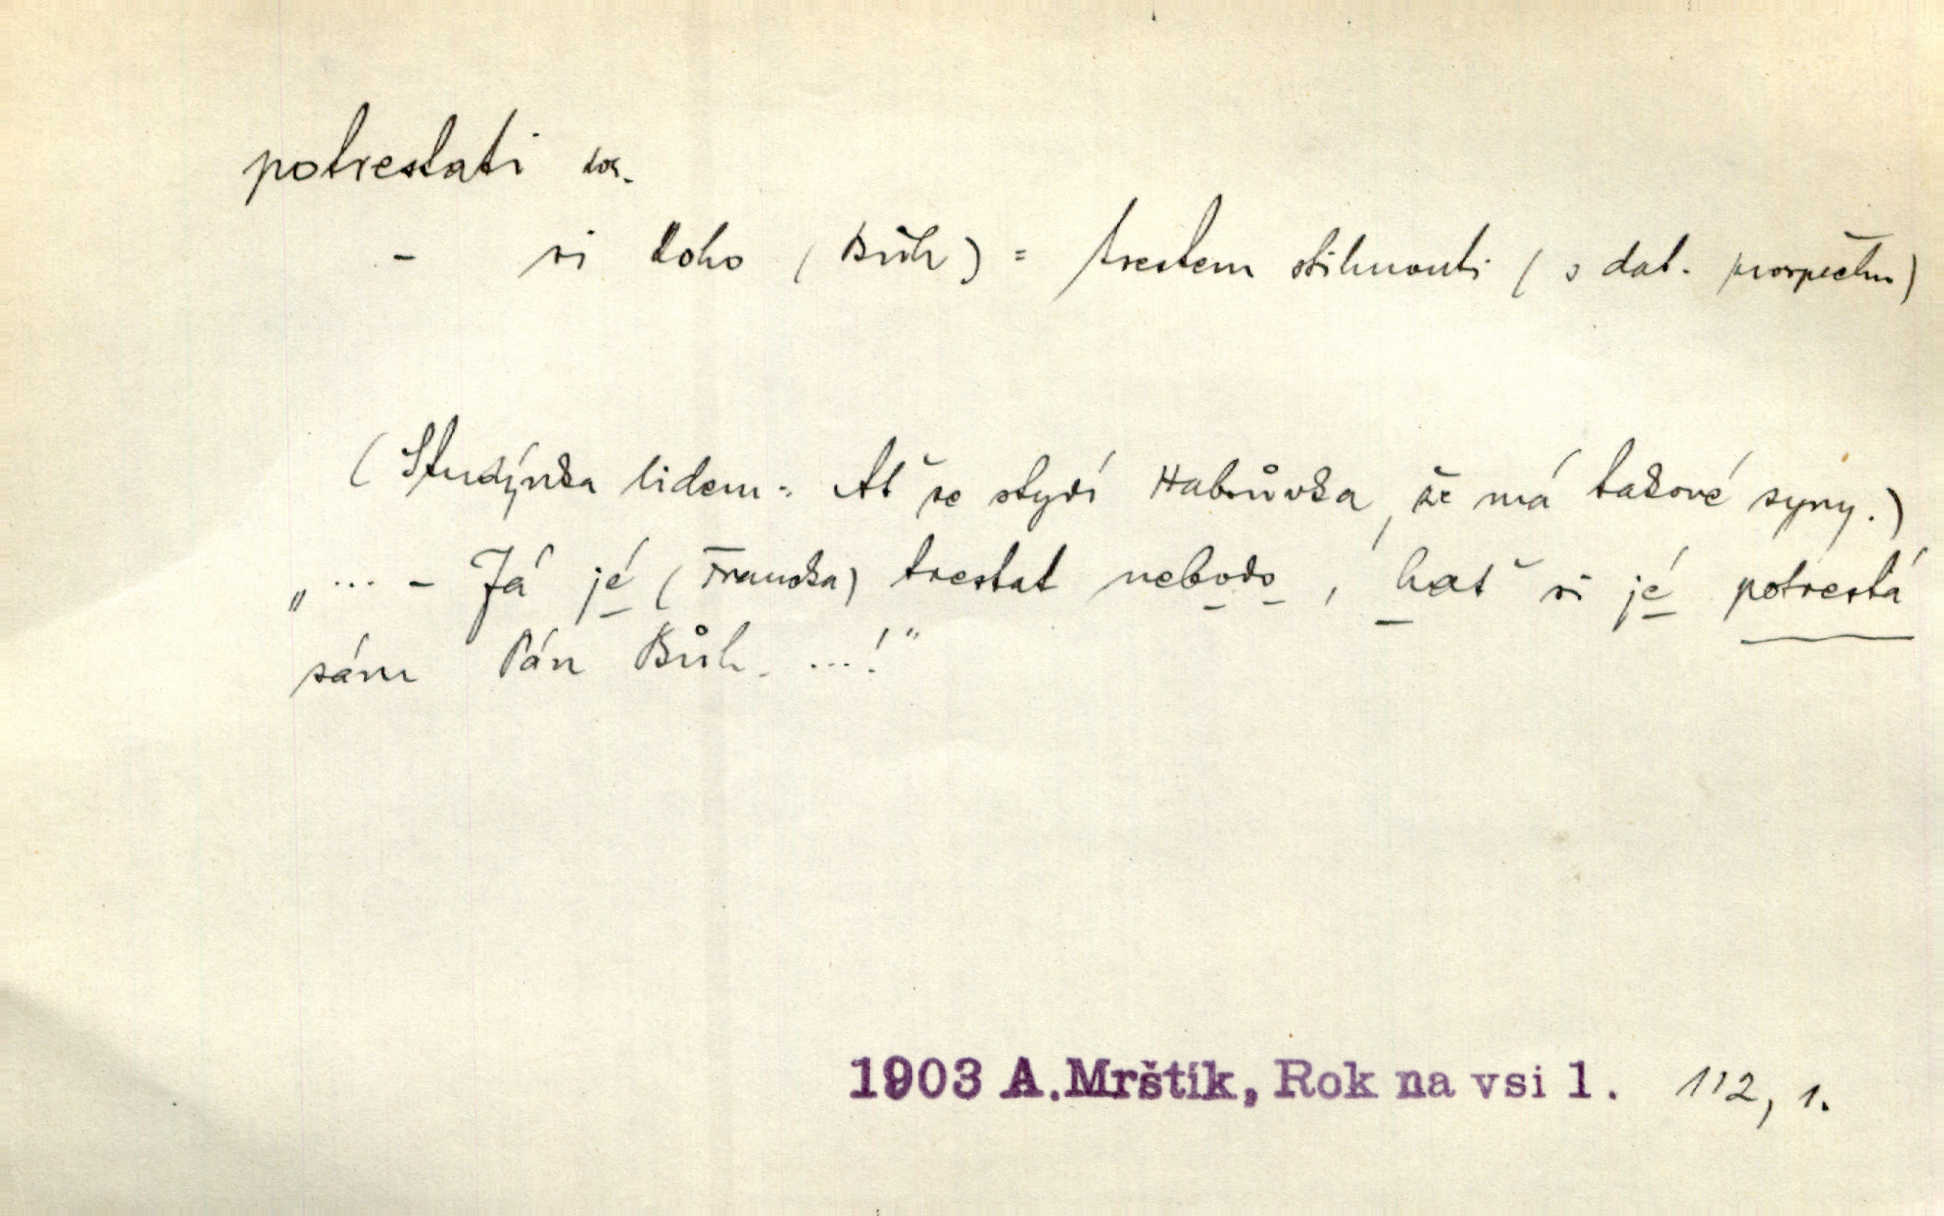 potrestati dok.
- si koho (Bůh) = trestem stihnouti (s dat. prospěchu)
(Studýnka lidem: Ať se stydí Habrůvka, že má takové syny.)
„... - Já jé (Francka) trestat nebodo, hať si jé potrestá
sám Pán Bůh. ...!"
1903 A.Mrštík, Rok na vsi 1. 112, 1.